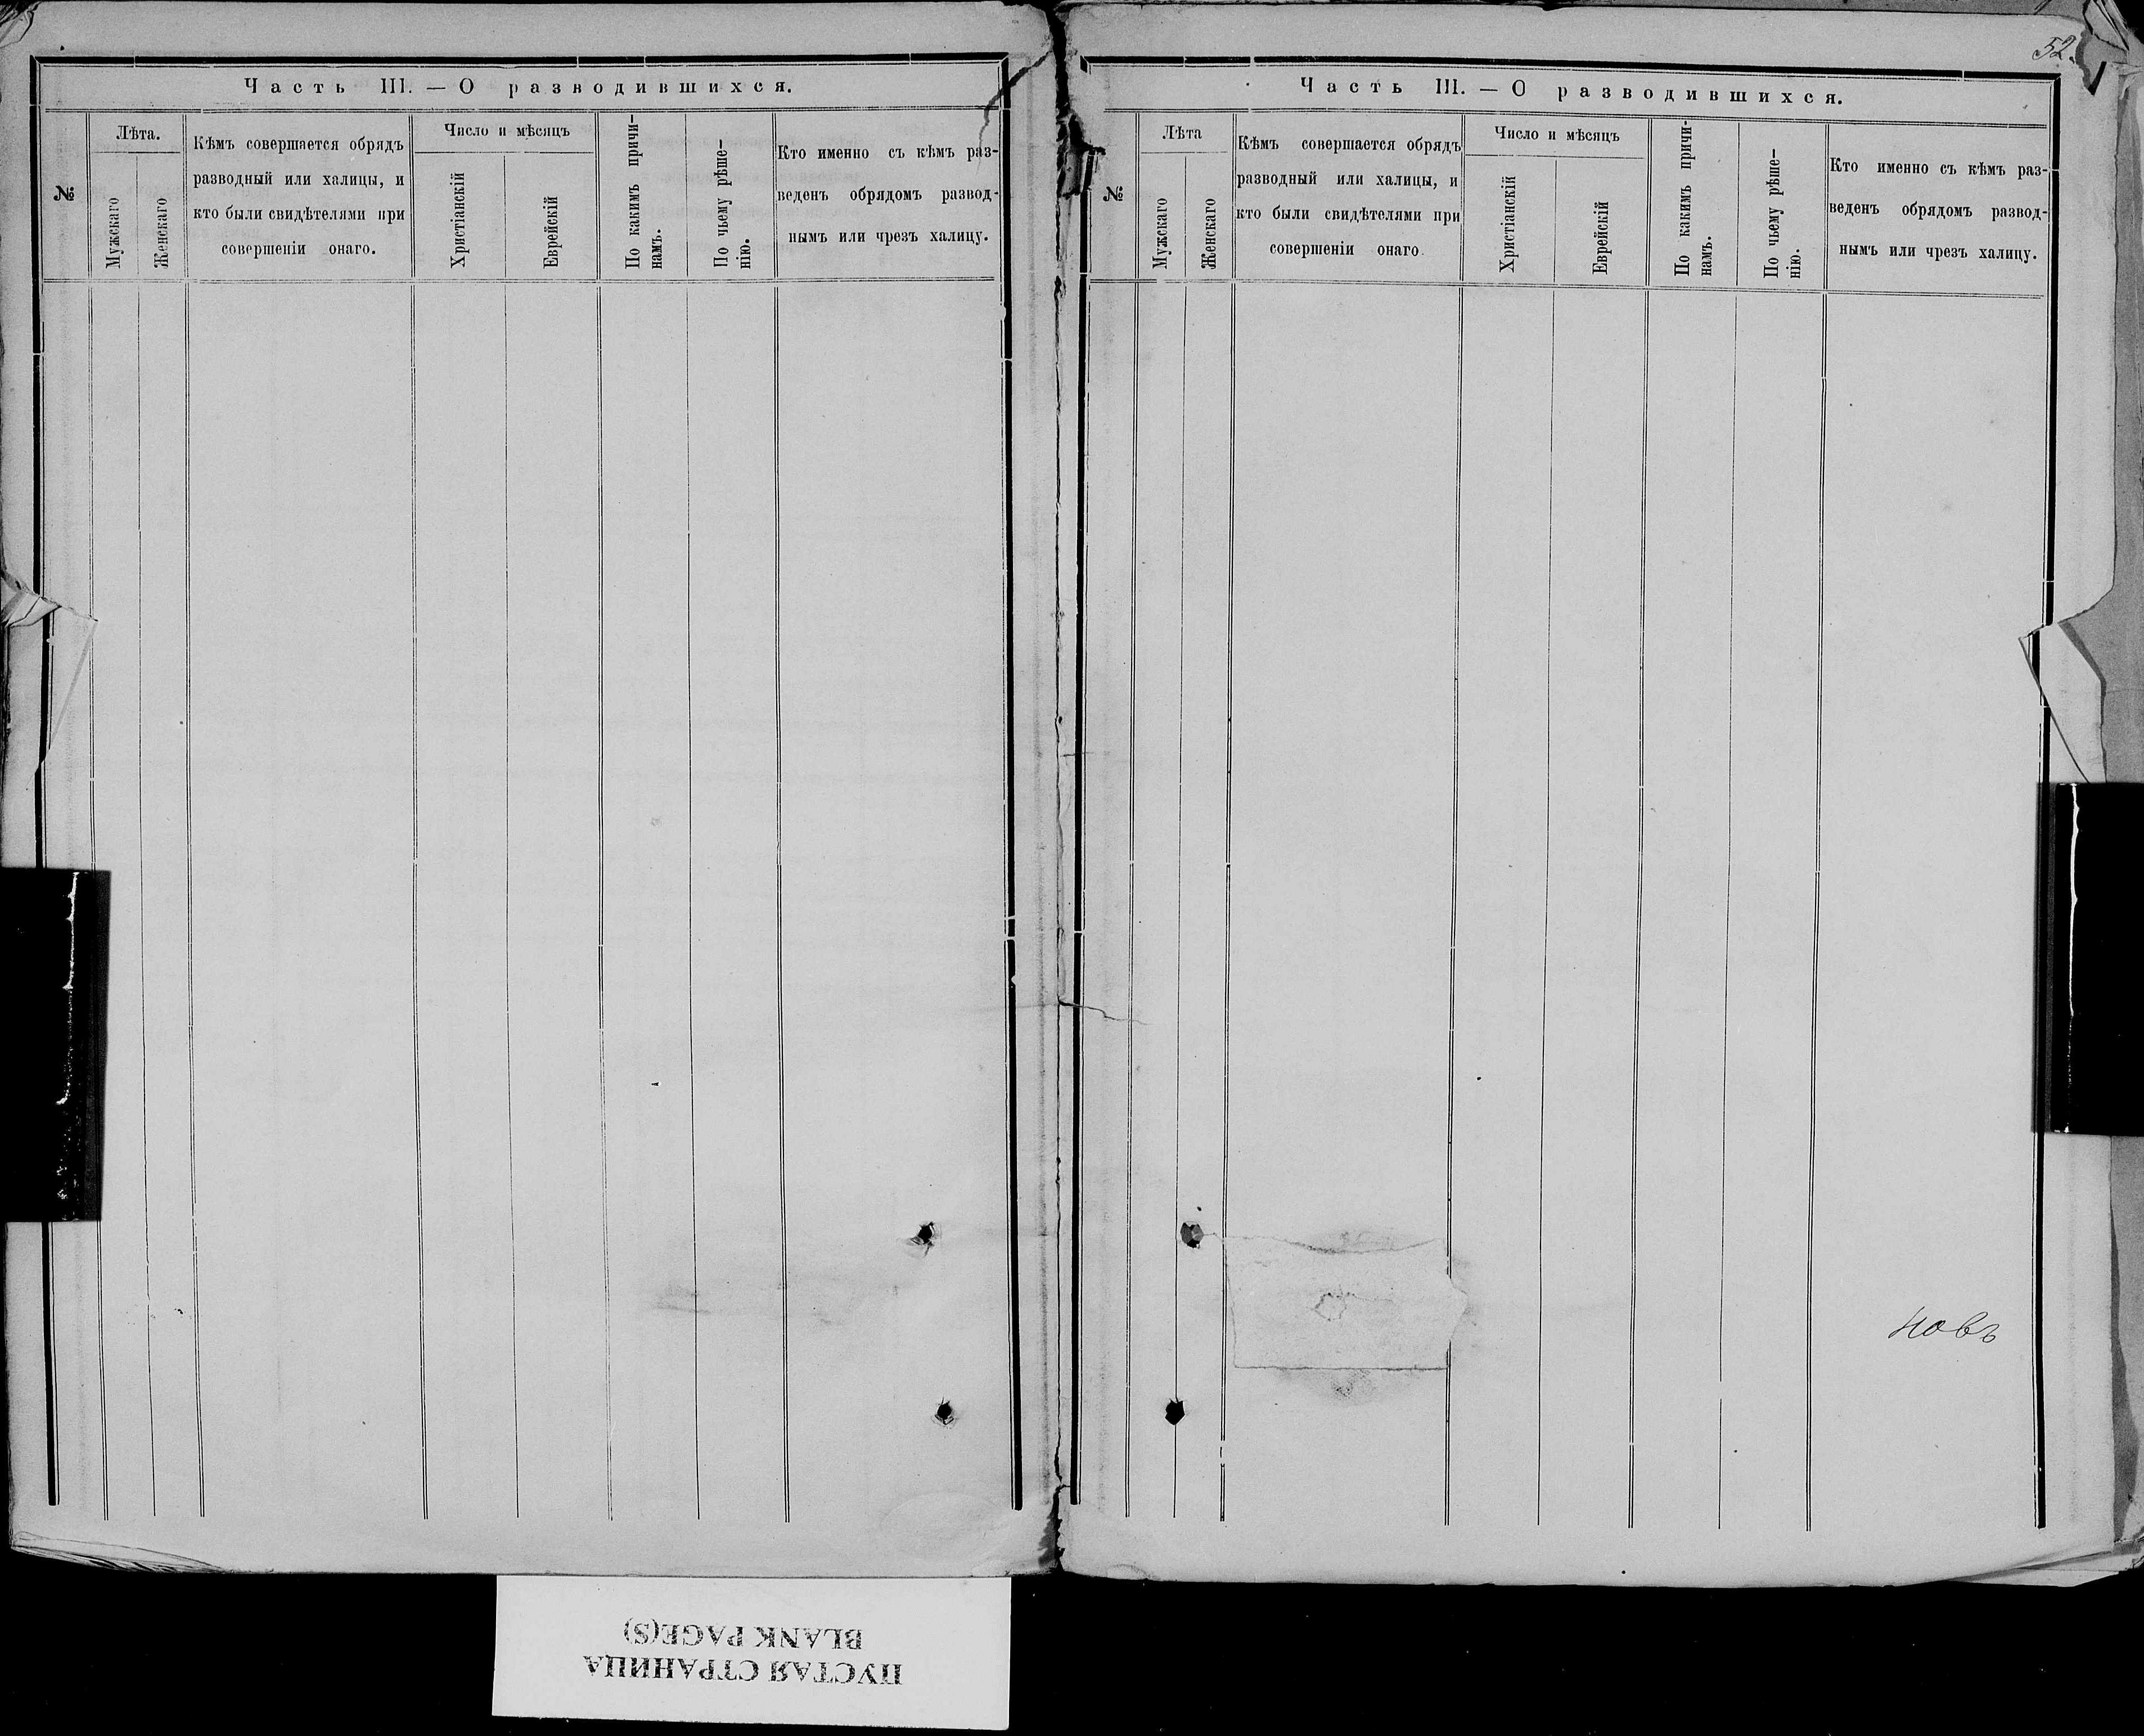 Часть III. — О разводившихся.
№
Лѣта.
Мужскаго
Женскаго
Кѣмъ совершается обрядъ
разводный или халицы, и
кто были свидѣтелями при
совершеніи онаго.
Число и мѣсяцъ
Христіанскій
Еврейскій
По какимъ причи-
намъ.
По чьему рѣше-
нію.
Кто именно съ кѣмъ раз-
веденъ обрядомъ развод-
нымъ или чрезъ халицу.
52.
Часть III. — О разводившихся.
№
Лѣта
Мужскаго
Женскаго
Кѣмъ совершается обрядъ
разводный или халицы, и
кто были свидѣтелями при
совершеніи онаго.
Число и мѣсяцъ
Христіанскій
Еврейскій
По какимъ причи-
намъ.
По чьему рѣше-
нію.
Кто именно съ кѣмъ раз-
веденъ обрядомъ развод-
нымъ или чрезъ халицу.
новъ
ПУСТАЯ СТРАНИЦА
BLANK PAGE(S)